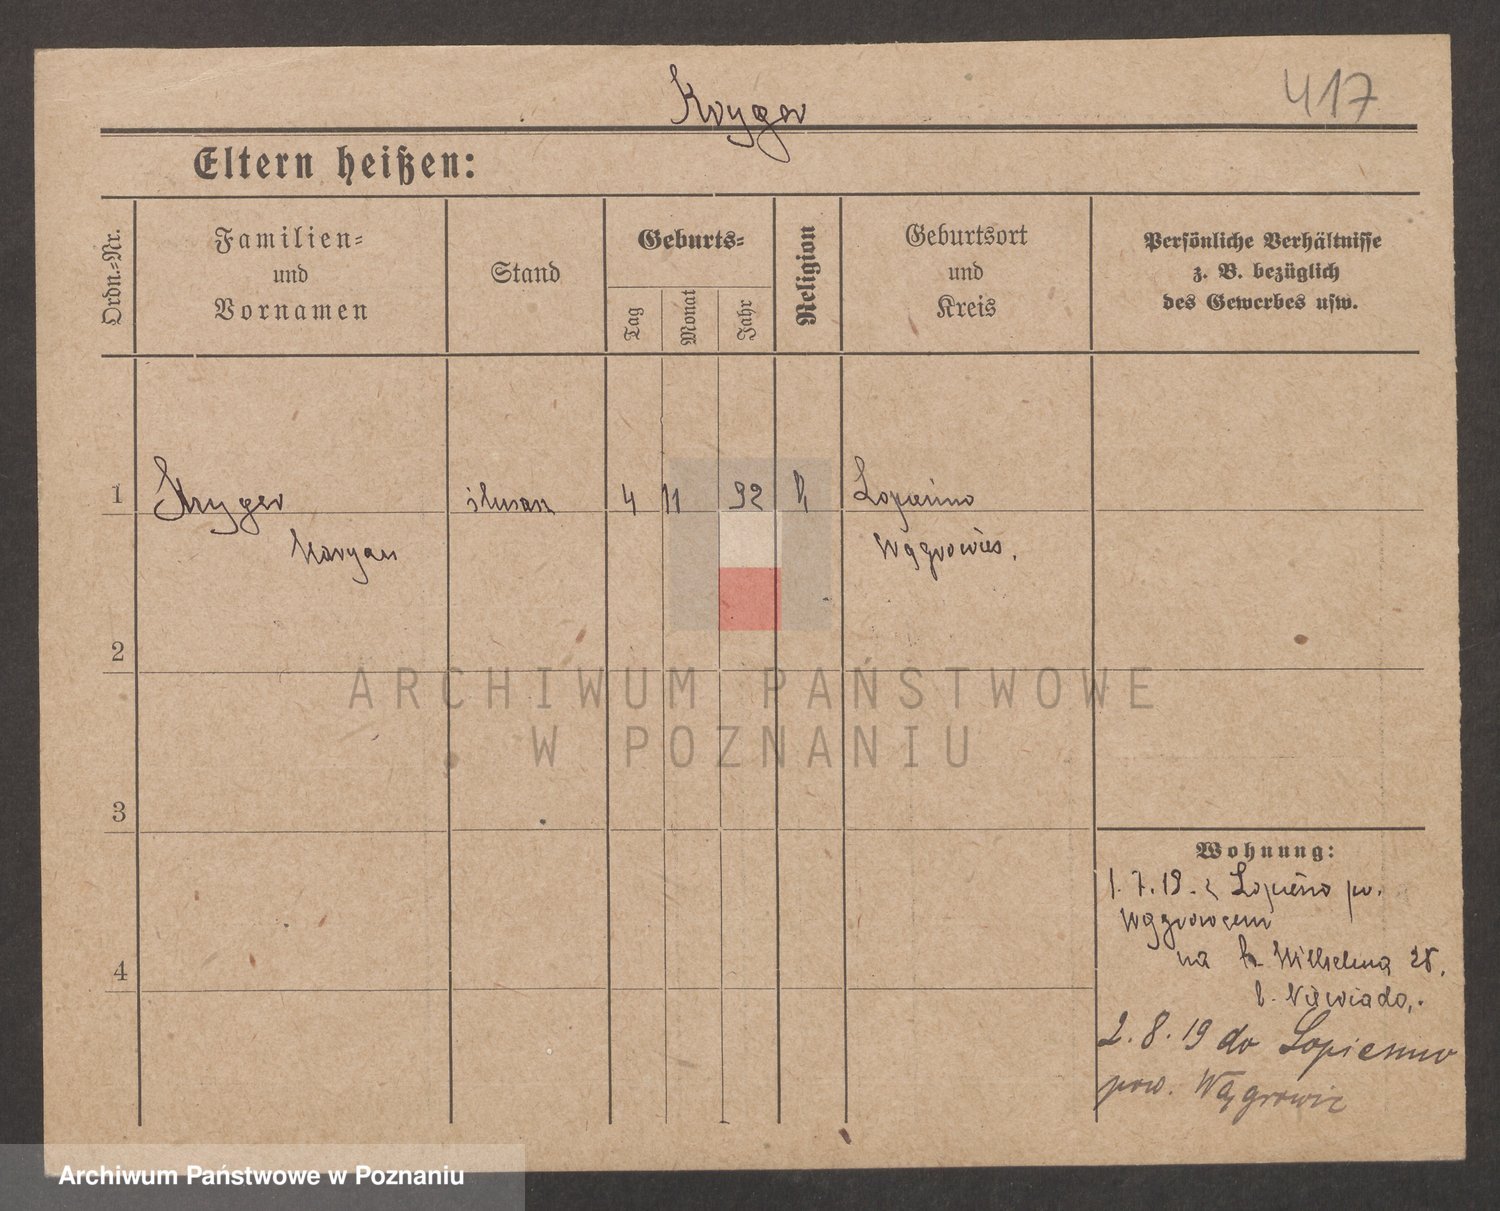 Kryger
417
Eltern heißen:
Ordn.-Nr.
Familien-
und
Vornamen
Stand
Geburts-
Tag
Monat
Jahr
Religion
Geburtsort
und
Kreis
Persönliche Verhältnisse
z. B. bezüglich
des Gewerbes usw.
1 Kryger ślusarz 4 11 92 k Lopienno
Maryan Wągrowiec.
2
ARCHIWUM PAŃSTWOWE
W POZNANIU
3
Wohnung:
1.7.19. z Lopienno pow.
Wągrowcem
na Wilhelma 25.
4
2.8.19 do Lopienno
pow. Wągrowiec
Archiwum Państwowe w Poznaniu